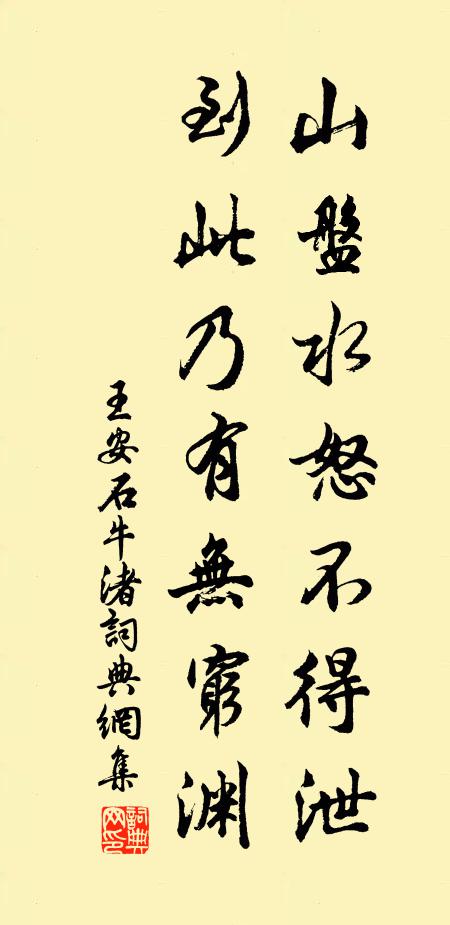 山盤水怒不得泄
到此乃有無窮淵
王安石牛渚詞典網集
詞典網印